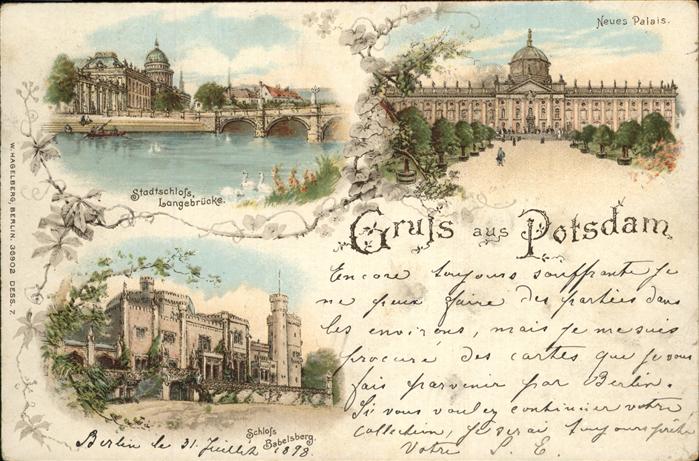 Neues Palais.
Stadtschloſs,
Langebrücke.
W. HAGELBERG, BERLIN. 36902 DESS. 7.
Gruſs aus Potsdam
Encore toujours souffrante je
ne peux faire des parties dans
les environs, mais je me suis
procuré des cartes que je vous
fais parvenir par Berlin.
Si vous voulez continuer votre
collection, je serai toujours prête
Votre S. E.
Schloſs
Babelsberg.
Berlin le 31. Juillet 1898.